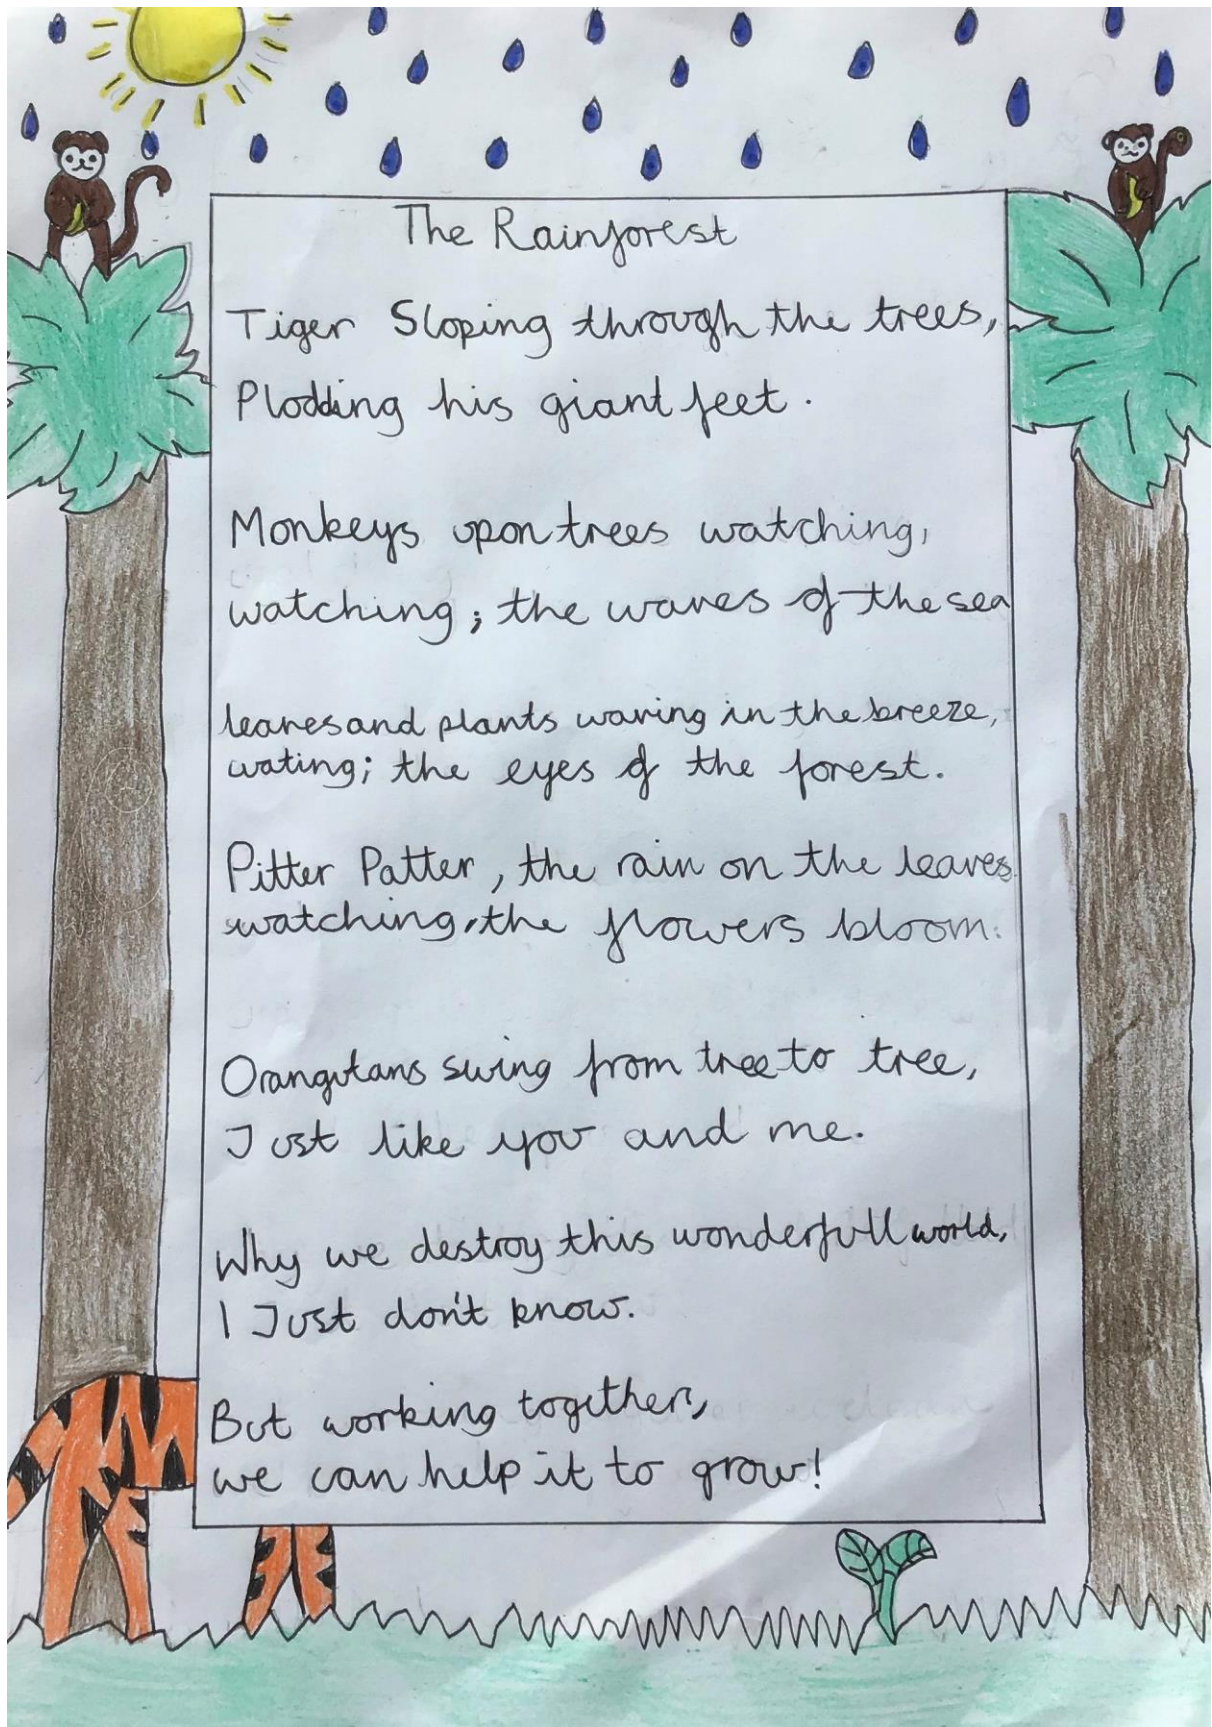 The Rainforest
Tiger Sloping through the trees,
Plodding his giant feet.
Monkeys upon trees watching,
watching; the waves of the sea
leaves and plants waving in the breeze,
wating; the eyes of the forest.
Pitter Patter, the rain on the leaves
watching, the flowers bloom.
Orangutans swing from tree to tree,
Just like you and me.
Why we destroy this wonderfull world,
I Just don't know.
But working together,
we can help it to grow!